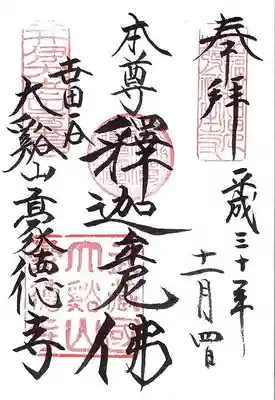 奉拝
平成三十年
十一月四日
本尊
釋迦牟尼佛
世田谷
大谿山豪德寺